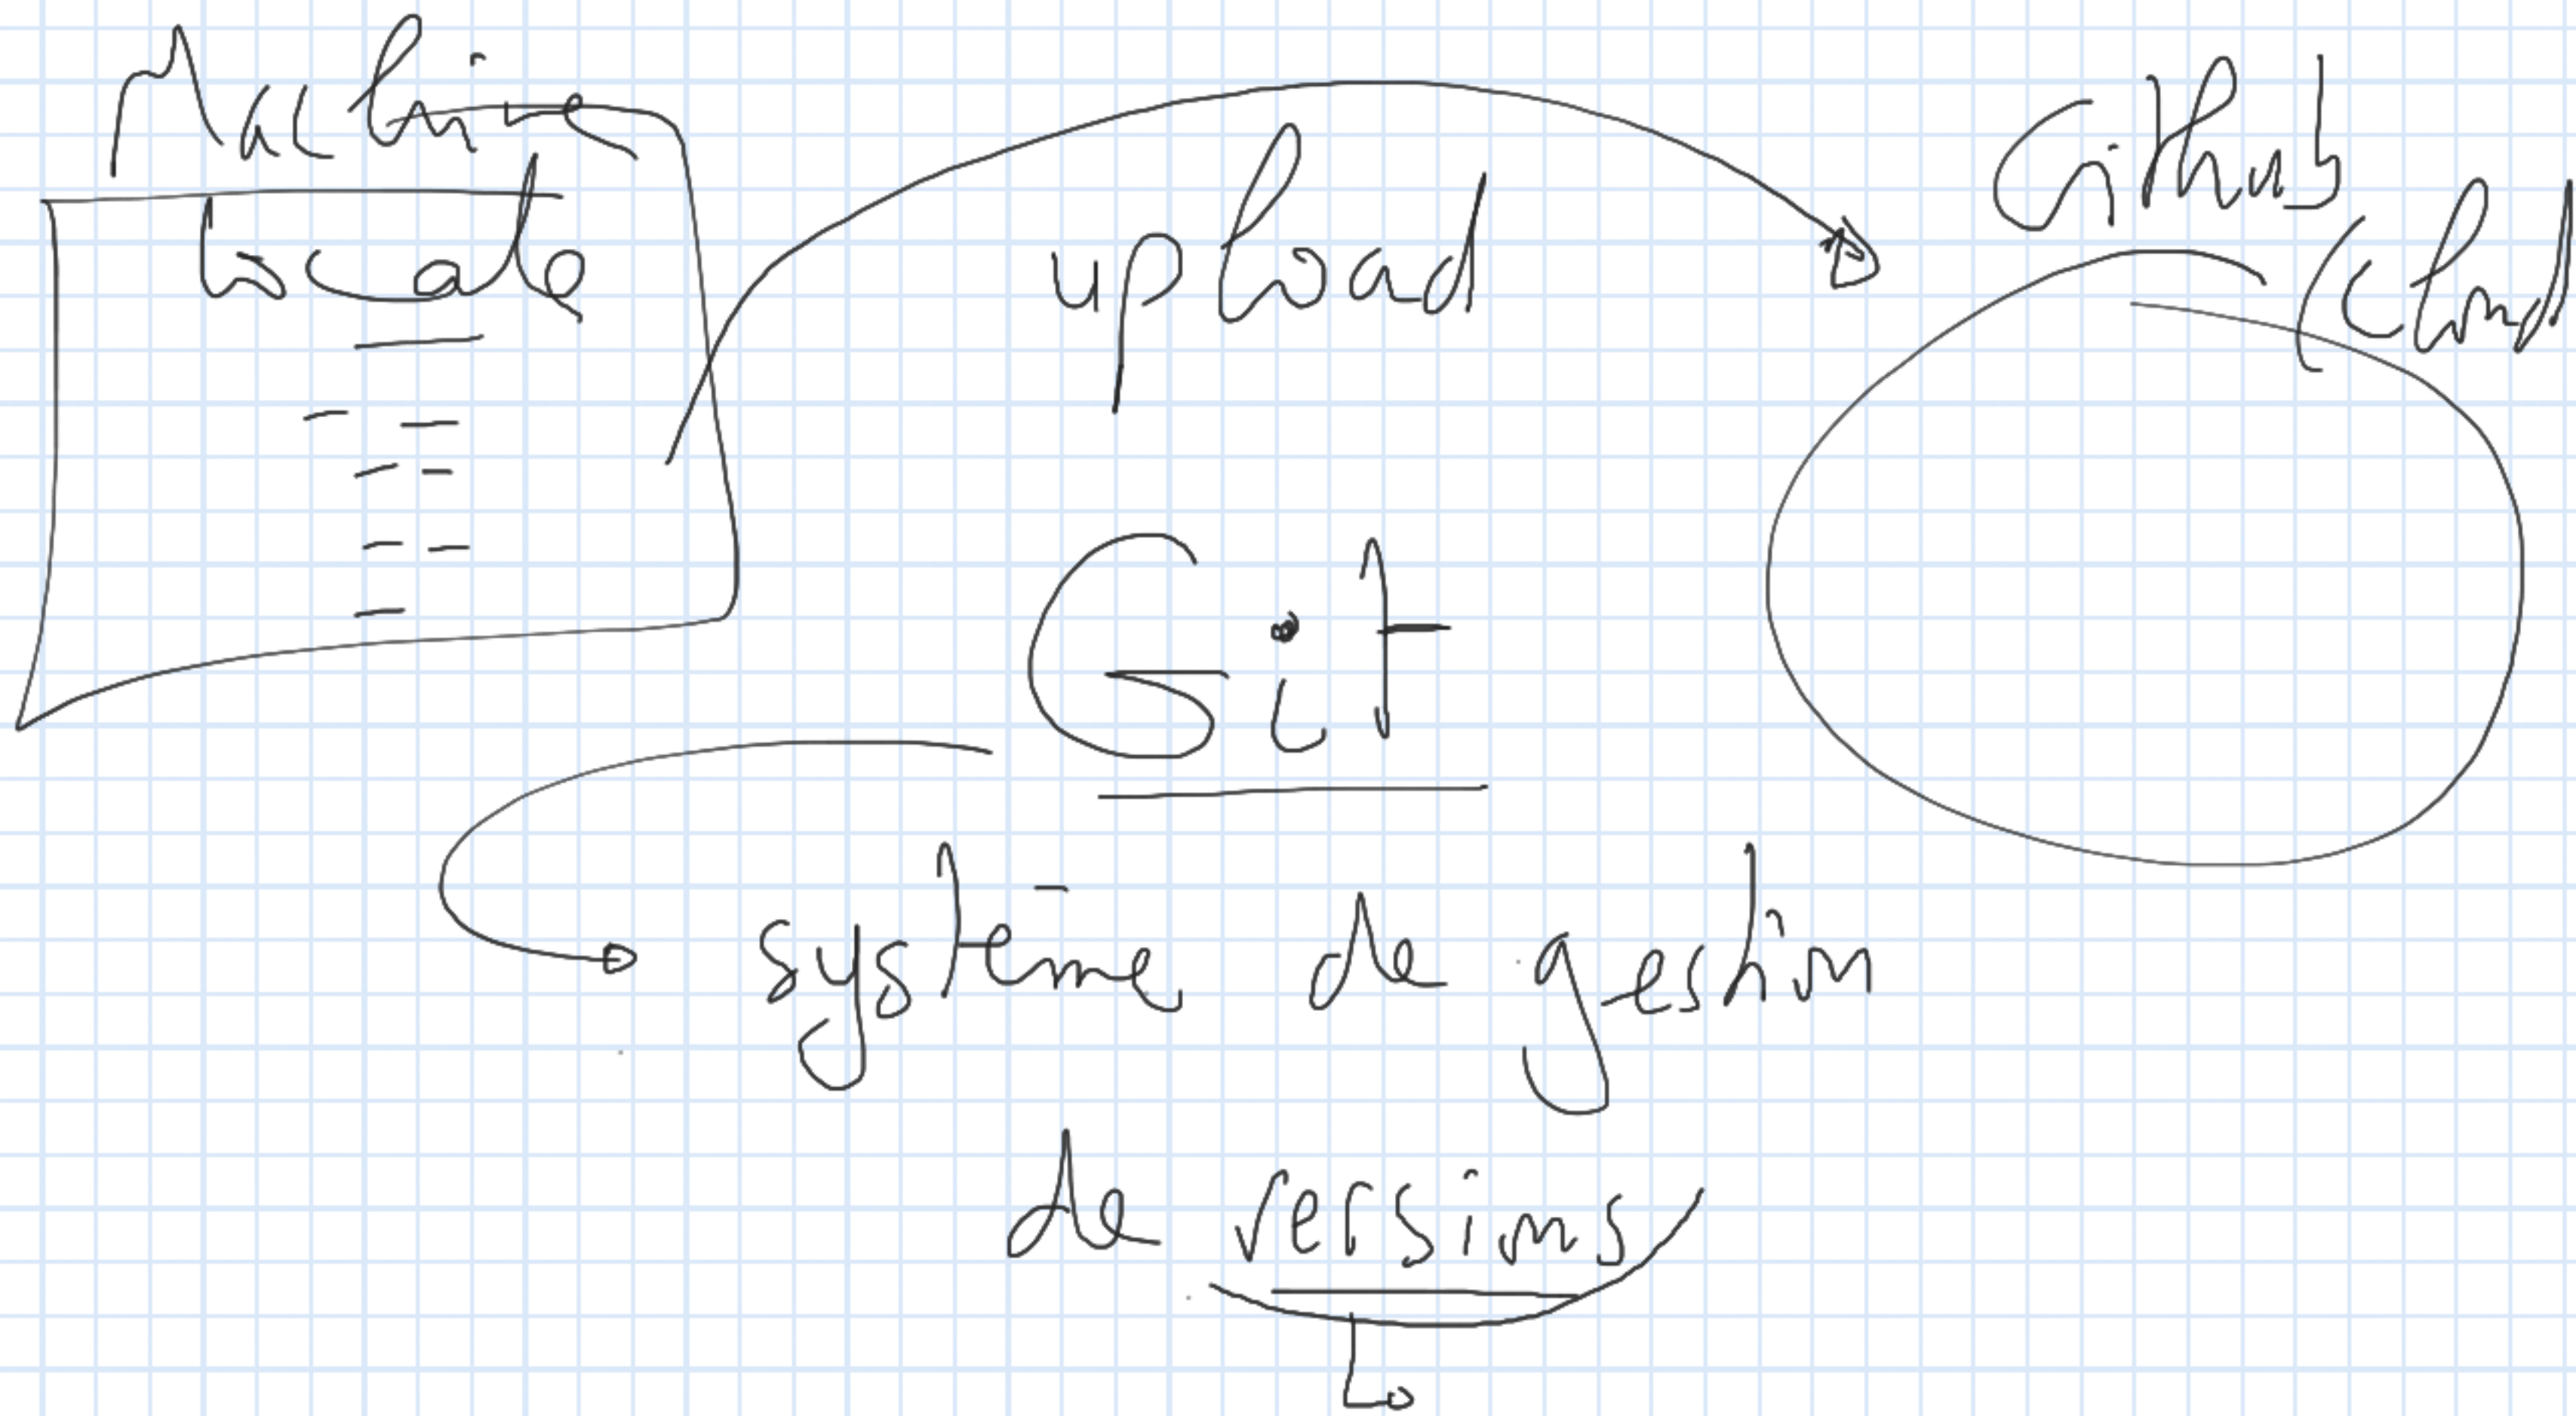 Machine
locale
upload
Github
(cloud
Git
système de gestion
de versions